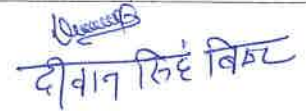 दीवान सिहं बिष्ट